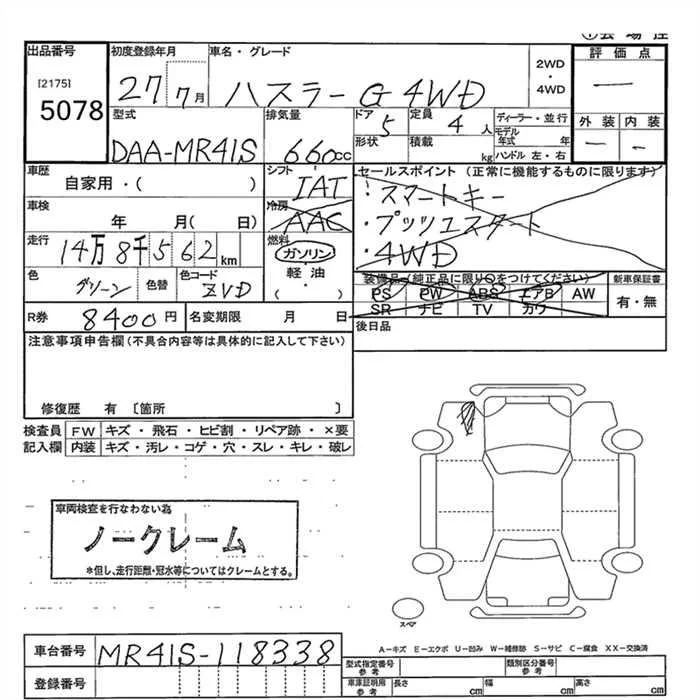 ①会場控
出品番号
[2175]
5078
初度登録年月
27 7月
車名・グレード
ハスラー G 4WD
2WD
・
4WD
評価点
―
型式
DAA-MR41S
排気量
660cc
ドア
5
形状
定員
4人
積載
kg
ディーラー・並行
モデル年式 年
ハンドル 左・右
外装 内装
― ―
車歴
自家用・( )
シフト
IAT
セールスポイント (正常に機能するものに限ります)
・スマートキー
・プッシュスタート
・4WD
車検
年 月( 日)
冷房
AAC
走行
14万8千562km
燃料
ガソリン
軽油
( ・ )
色
グリーン
色替
色コード
ZVD
装備品(純正品に限り○をつけてください)
PS PW ABS エアB AW
SR ナビ TV カワ
新車保証書
有・無
R券 8400円
名変期限 月 日
後日品
注意事項申告欄(不具合内容等は具体的に記入して下さい)
修復歴 有 〔箇所 〕
検査員記入欄
FW キズ・飛石・ヒビ割・リペア跡・×要
内装 キズ・汚レ・コゲ・穴・スレ・キレ・破レ
車両検査を行なわない為
ノークレーム
*但し、走行距離・冠水等についてはクレームとする。
スペア
A-キズ E-エクボ U-凹み W-補修跡 S-サビ C-腐食 XX-交換済
車台番号 MR41S-118338
登録番号
型式指定番号
参考
類別区分番号
参考
車庫証明用
参考
長さ cm 幅 cm 高さ cm